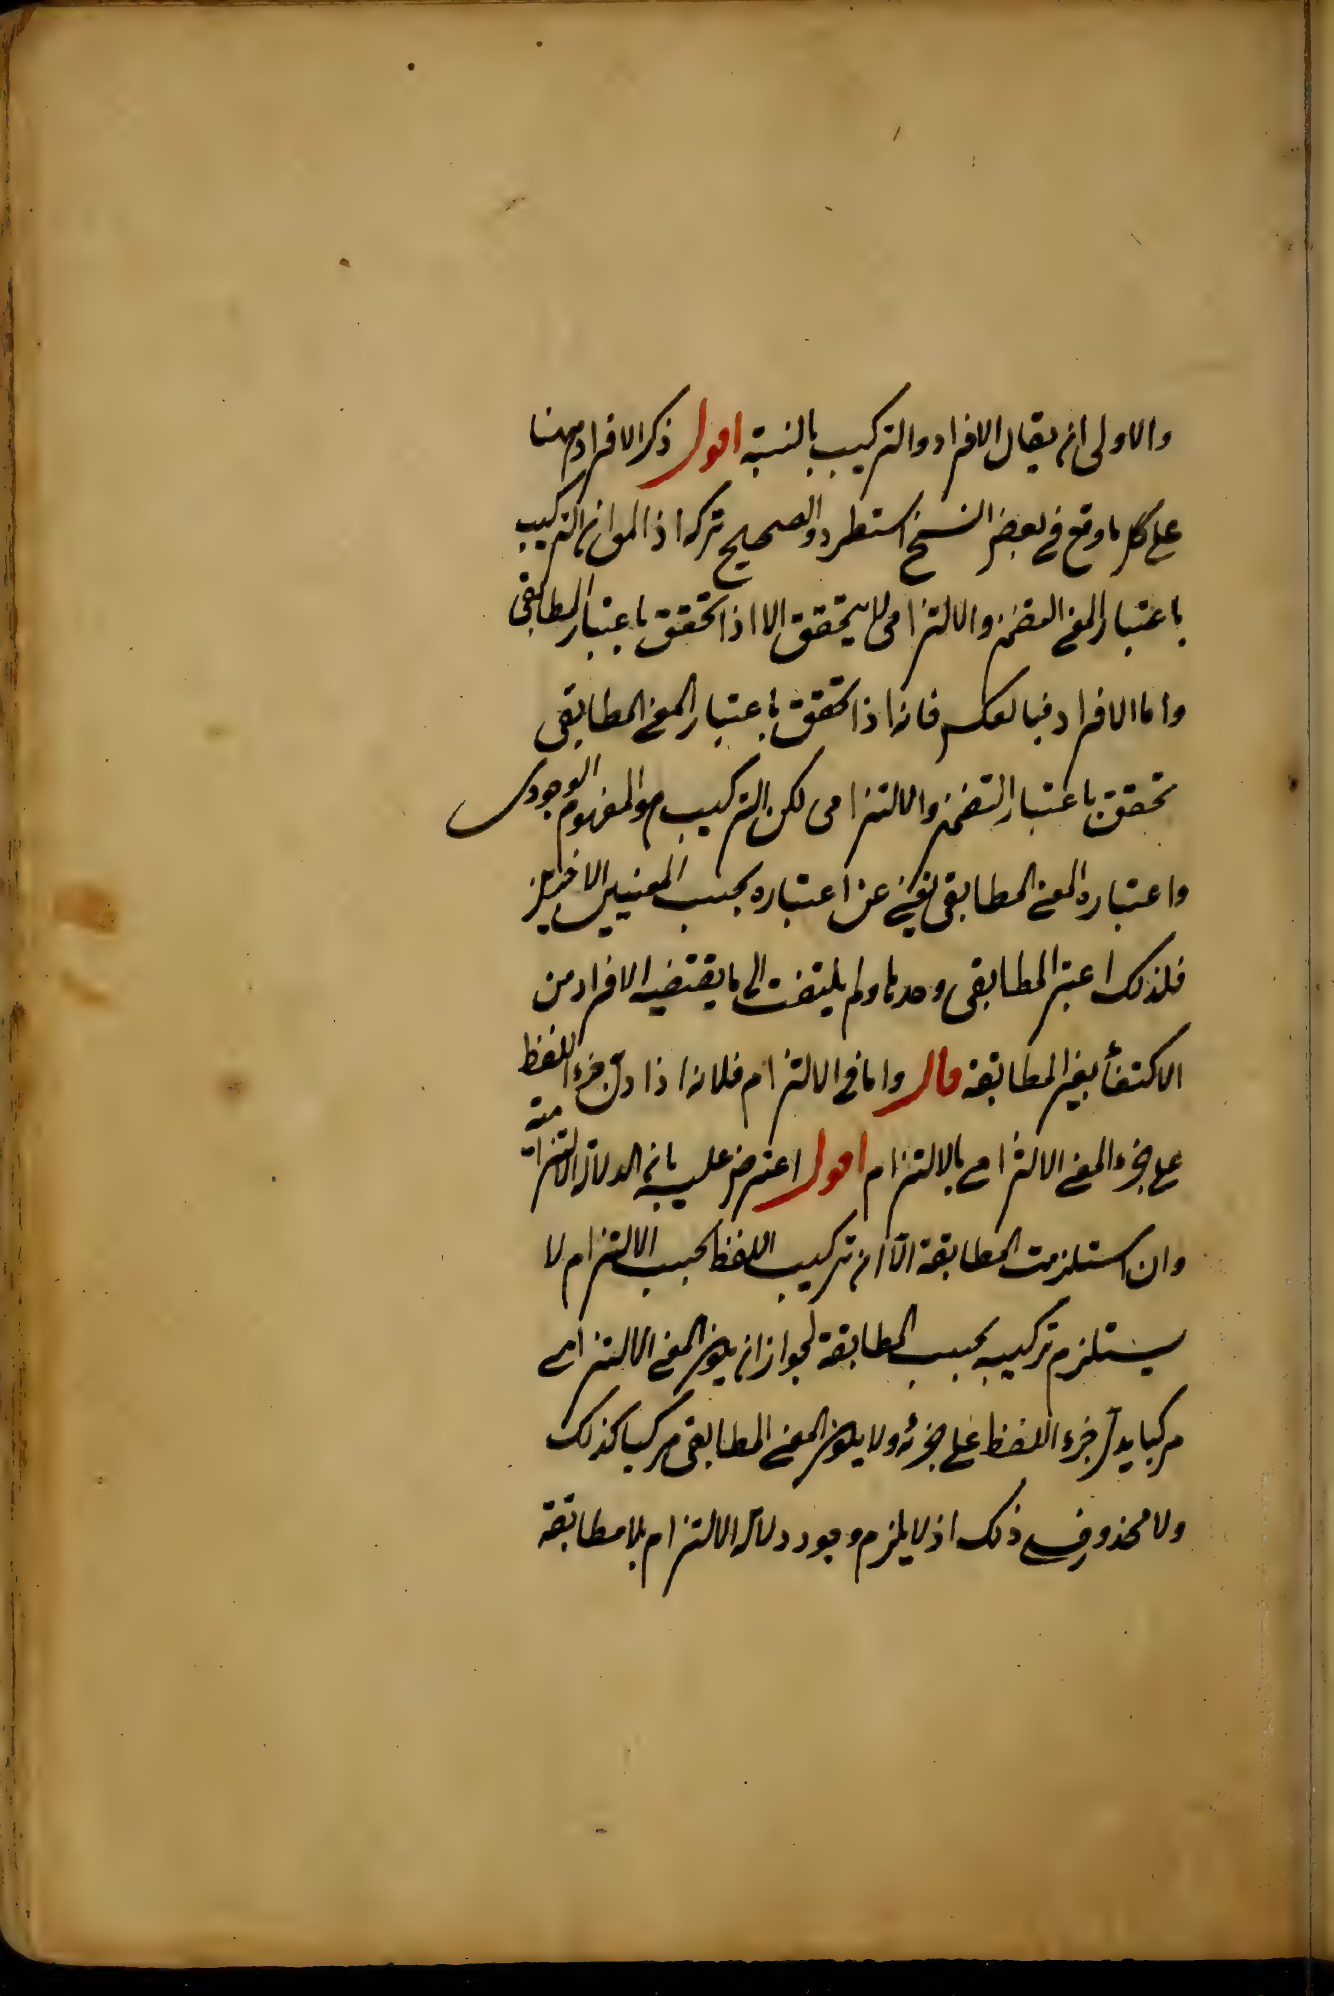 والاولى ان يقال الافراد والتركيب بالنسبة اقول ذكر الافراد ههنا
على ما وقع في بعض النسخ استطراد والصحيح تركه اذ المراد ان التركيب
باعتبار المعنى التضمني والالتزامى لا يتحقق الا اذا تحقق باعتبار المطابقى
واما الافراد فبالعكس فانه اذا تحقق باعتبار المعنى المطابقى
تحقق باعتبار التضمنى والالتزامى لكن التركيب هو المفهوم الوجودى
واعتباره المعنى المطابقى يغني عن اعتباره بحسب المعنيين الاخيرين
فلذلك اعتبر المطابقى وحدها ولم يلتفت الى ما يقتضيه الافراد من
الاكتفاء بغير المطابقة قال واما في الالتزام فلانه اذا دل جزء اللفظ
على جزء المعنى الالتزامي بالالتزام اقول اعترض عليه بان الدلالة الالتزامية
وان استلزمت المطابقة الا ان تركيب اللفظ بحسب الالتزام لا
يستلزم تركيبه بحسب المطابقة لجواز ان يكون المعنى الالتزامي
مركبا يدل جزء اللفظ على جزئه ولا يكون المعنى المطابقى مركبا كذلك
ولا محذور في ذلك اذ لا يلزم وجود دلالة الالتزام بلا مطابقة